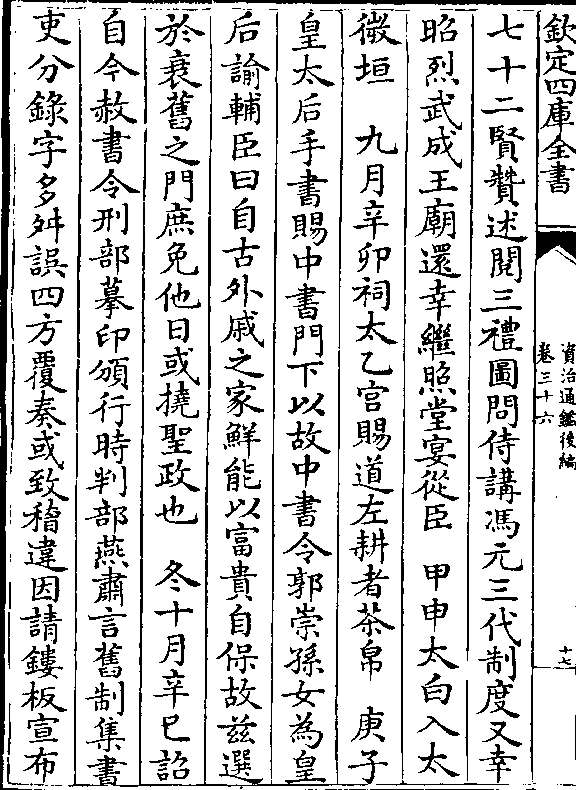 欽定四庫全書
資治通鑑後編
卷三十六
十七
七十二賢贊述閱三禮圖問侍講馮元三代制度又幸
昭烈武成王廟還幸繼照堂宴從臣　甲申太白入太
微垣　九月辛卯祠太乙宮賜道左耕者茶帛　庚子
皇太后手書賜中書門下以故中書令郭崇孫女為皇
后諭輔臣曰自古外戚之家鮮能以富貴自保故兹選
於衰舊之門庶免他日或撓聖政也　冬十月辛巳詔
自今赦書令刑部摹印頒行時判部燕肅言舊制集書
吏分錄字多舛誤四方覆奏或致稽違因請鏤板宣布